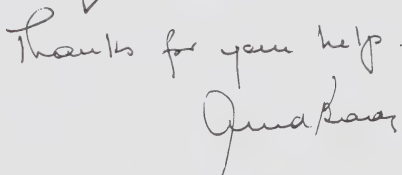 Thanks for your help.